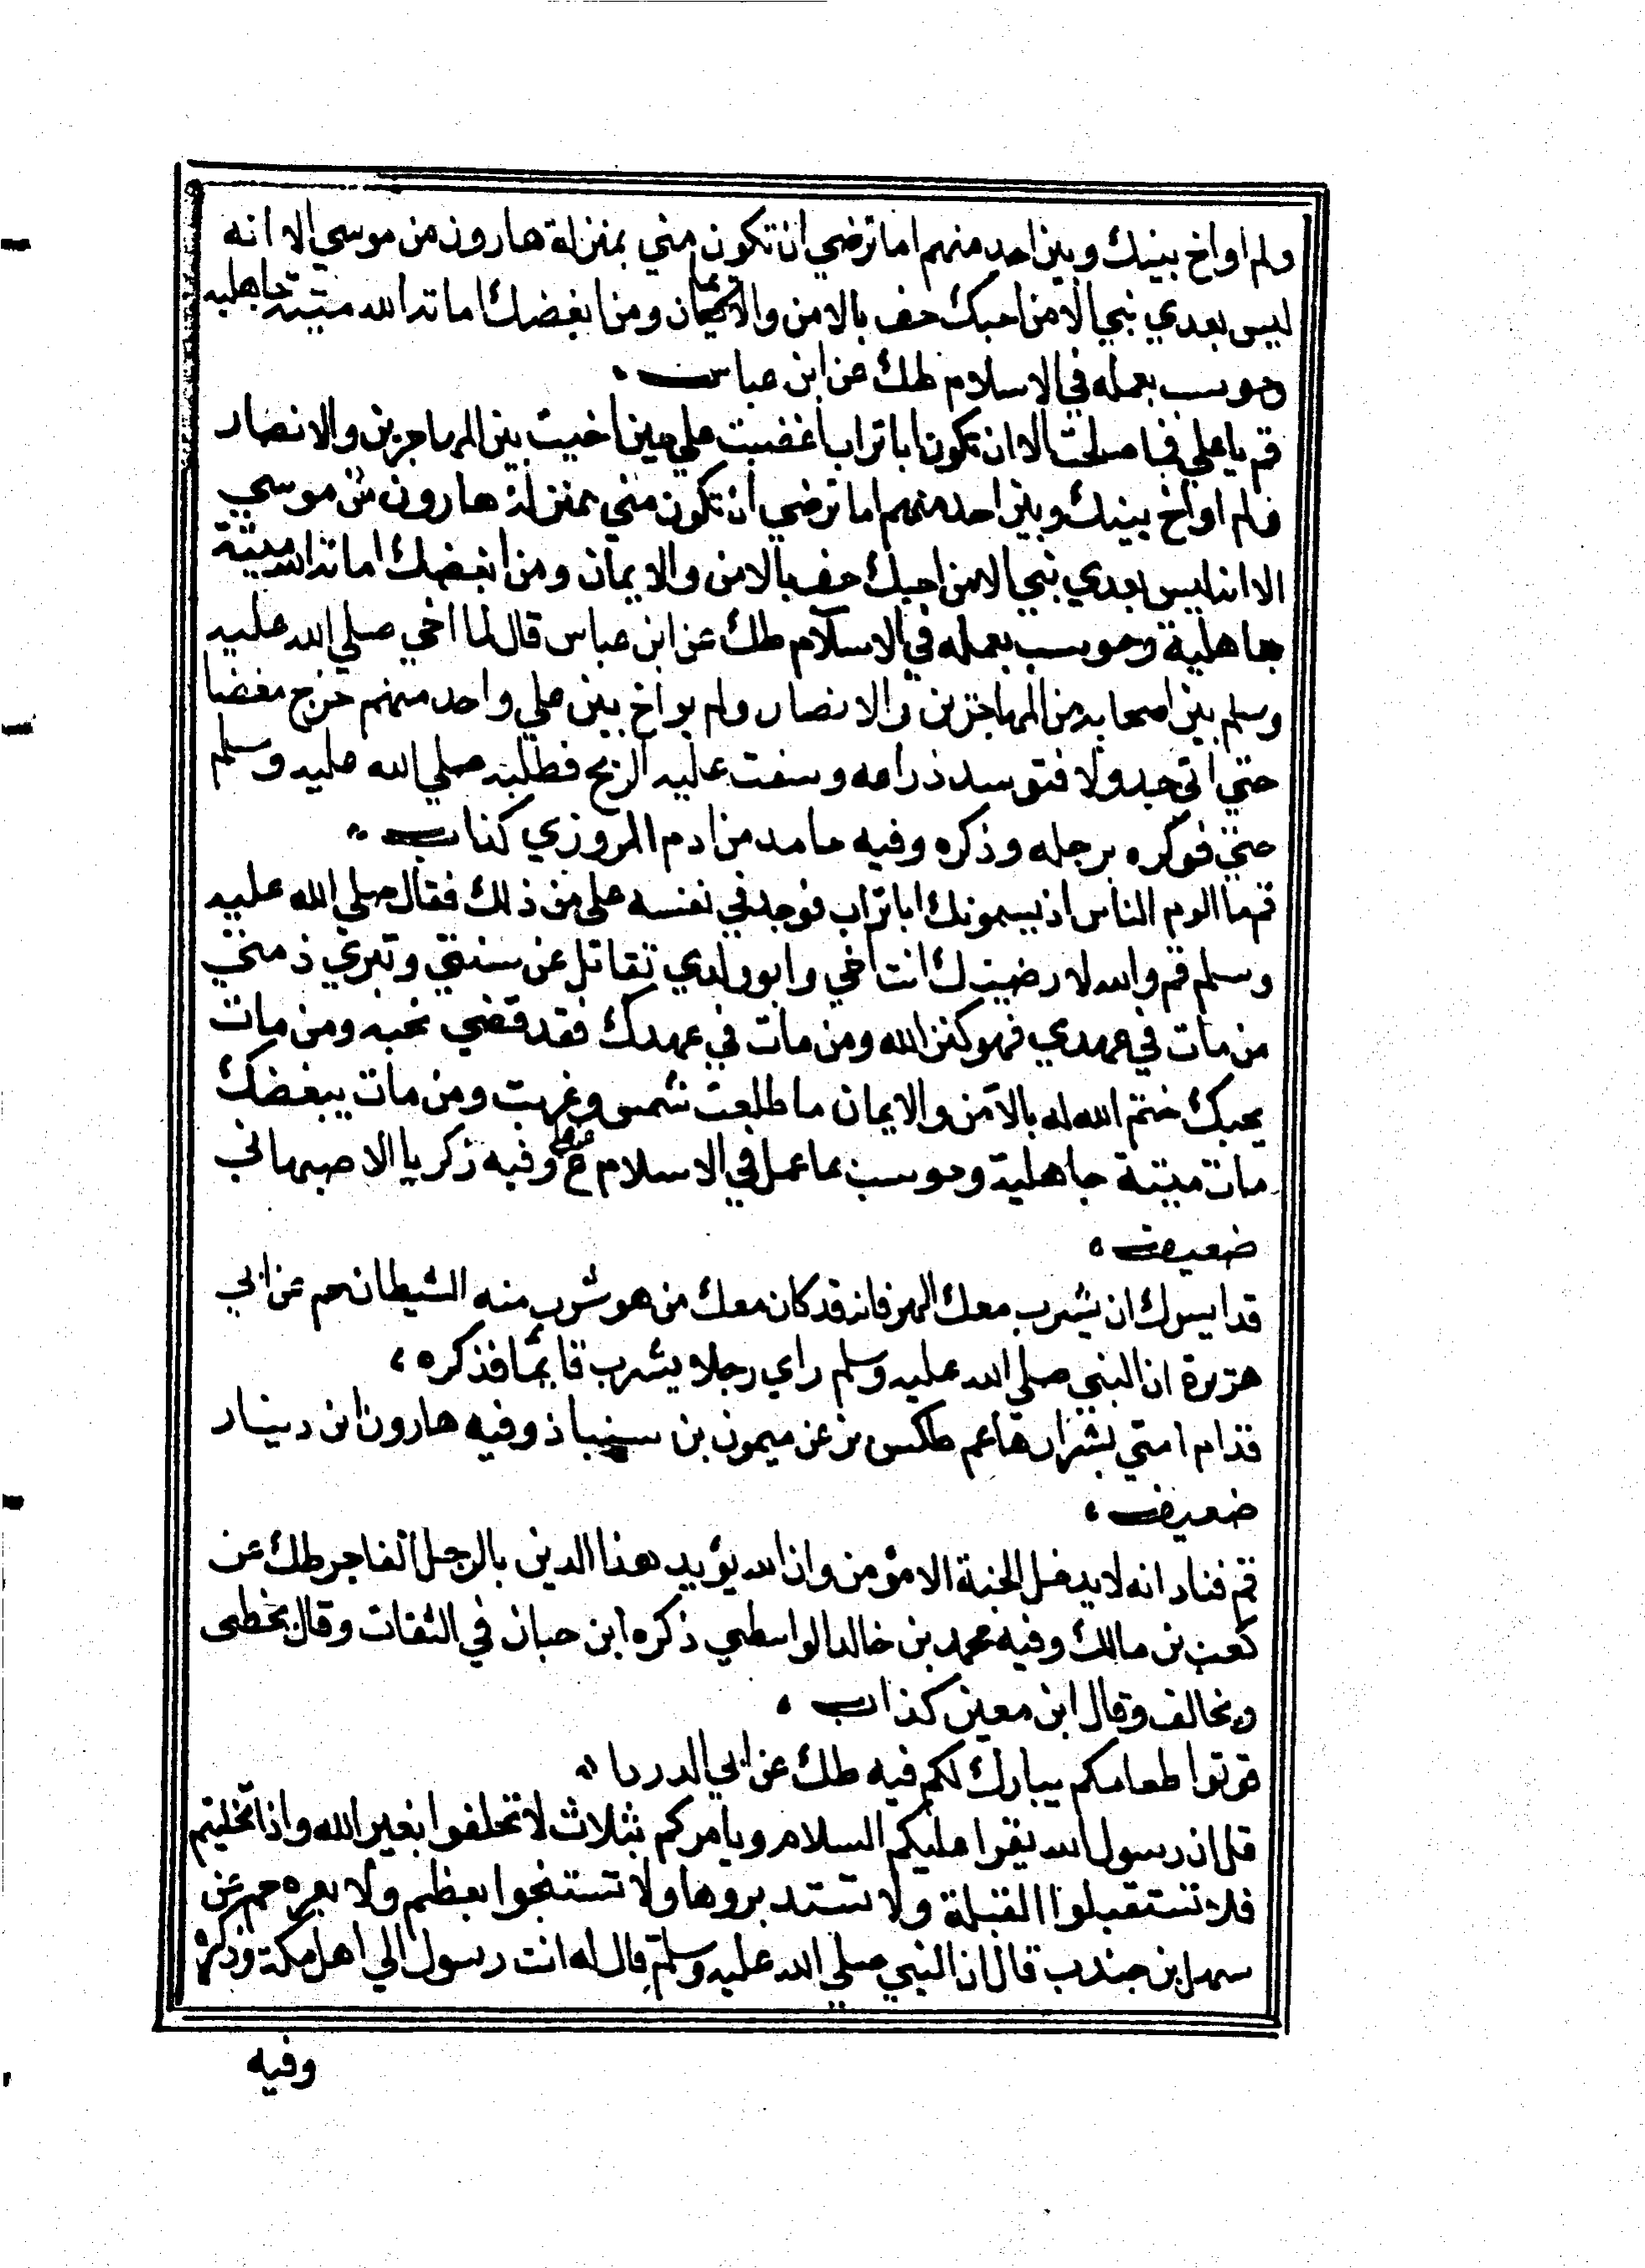 ولم اواخ بينك وبين احد منهم اما ترضي ان تكون مني بمنزلة هارون من موسي الا انه
ليس بعدي نبي الا من احبك حف بالامن والايمان ومن ابغضك اماته الله ميتة جاهليه
وحوسب بعمله في الاسلام طك عن ابن عباس
قم يا علي فما صلحت الا ان تكون ابا تراب اغضبت علي حين اخيت بين المهاجرين والانصار
ولم اواخ بينك وبين احد منهم اما ترضي ان تكون مني بمنزلة هارون من موسي
الا انه ليس بعدي نبي الا من احبك حف بالامن والايمان ومن ابغضك اماته الله ميتة
جاهلية وحوسب بعمله في الاسلام طك عن ابن عباس قال لما اخي صلي الله عليه
وسلم بين اصحابه من المهاجرين والانصار ولم يواخ بين علي واحد منهم خرج مغضبا
حتي اتي جدولا فتوسد ذراعه وسفت عليه الريح فطلبه صلي الله عليه وسلم
حتي فوكره برجله وذكره وفيه حامد من ادم المروزي كذاب
قم ما الوم الناس اذ يسمونك ابا تراب فوجد في نفسه علي من ذلك فقال صلي الله عليه
وسلم قم والله لارضينك انت اخي وابو ولدي تقاتل عن سنتي وتبري ذمتي
من مات في عهدي فهو كنز الله ومن مات في عهدك فقد قضي نحبه ومن مات
يحبك ختم الله له بالامن والايمان ما طلعت شمس وغربت ومن مات يبغضك
مات ميتة جاهلية وحوسب بما عمل في الاسلام ع عن علي وفيه زكريا الاصبهاني
ضعيف
قد ايسرك ان يشرب معك الهر فانه قد كان معك من هو شر منه الشيطان حم عن ابي
هريرة ان النبي صلي الله عليه وسلم راي رجلا يشرب قايما فذكره
قذام امتي بشرارها عم طكس بز عن ميمون بن سنباذ وفيه هارون ابن دينار
ضعيف
قم فناد انه لا يدخل الجنة الا مؤمن وان الله يؤيد هذا الدين بالرجل الفاجر طك عن
كعب بن مالك وفيه محمد بن خالد الواسطي ذكره ابن حبان في الثقات وقال يخطي
ويخالف وقال ابن معين كذاب
قوتوا طعامكم يبارك لكم فيه طك عن ابي الدردا
قل ان رسول الله يقرا عليكم السلام ويامركم بثلاث لا تحلفوا بغير الله واذا تخليتم
فلا تستقبلوا القبلة ولا تستدبروها ولا تستنجوا بعظم ولا بعره حم عن
سهل بن جندب قال ان النبي صلي الله عليه وسلم قال له انت رسول الي اهل مكة وذكره
وفيه